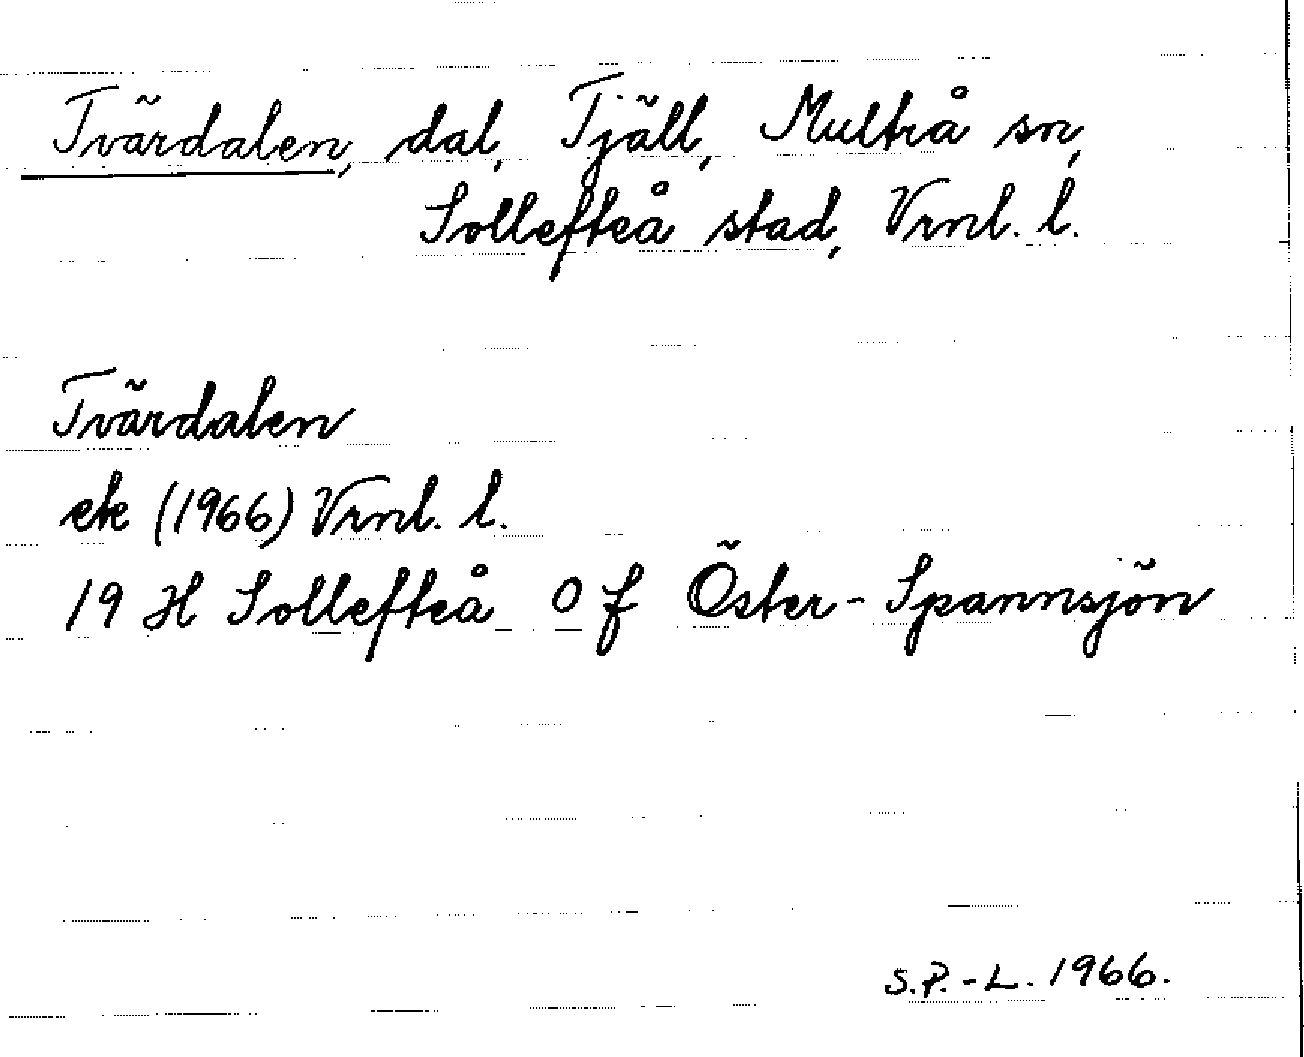 Tvärdalen, dal, Tjäll, Multrå sn,
Sollefteå stad, Vrnl. l.
Tvärdalen
ek (1966) Vrnl. l.
19 H Sollefteå O f Öster-Spannsjön
S.P.-L. 1966.